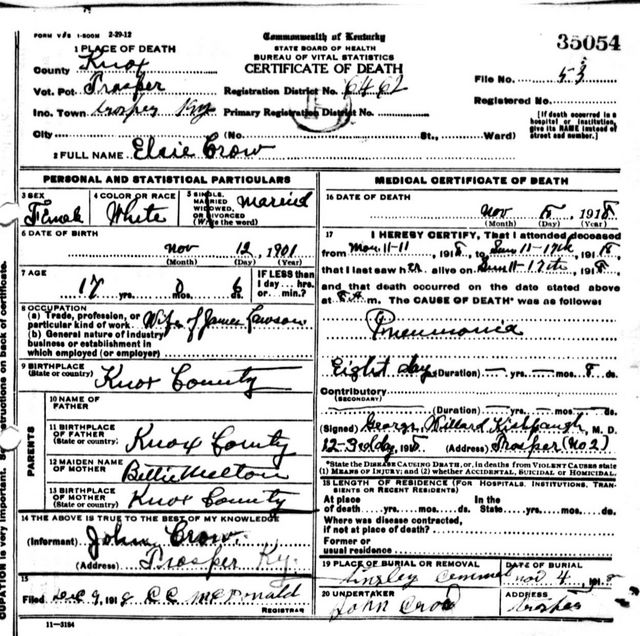 FORM V⚬S 1-500M 2-29-12
Commonwealth of Kentucky
STATE BOARD OF HEALTH
BUREAU OF VITAL STATISTICS
CERTIFICATE OF DEATH
35054
1 PLACE OF DEATH
County Knox
Vot. Pct. Prosper
Registration District No. 6462
File No. 53
Inc. Town Prosper Ky
Primary Registration District No.
Registered No.
City (No. St., Ward)
[If death occurred in a hospital or institution, give its NAME instead of street and number.]
2 FULL NAME Elsie Crow
PERSONAL AND STATISTICAL PARTICULARS
3 SEX
Female
4 COLOR OR RACE
White
5 SINGLE, MARRIED WIDOWED, OR DIVORCED (Write the word)
Married
6 DATE OF BIRTH
Nov 12, 1901
(Month) (Day) (Year)
7 AGE
17 yrs. 0 mos. 6 ds.
IF LESS than 1 day... hrs. or... min.?
8 OCCUPATION
(a) Trade, profession, or particular kind of work Wife of James Lawson
(b) General nature of industry business or establishment in which employed (or employer)
9 BIRTHPLACE
(State or country) Knox County
PARENTS
10 NAME OF FATHER
11 BIRTHPLACE OF FATHER
(State or country) Knox County
12 MAIDEN NAME OF MOTHER Bellie Melton
13 BIRTHPLACE OF MOTHER
(State or country) Knox County
14 THE ABOVE IS TRUE TO THE BEST OF MY KNOWLEDGE
(Informant) John Crow
(Address) Prosper Ky.
15
Filed Dec 9, 1918 CC McDonald
REGISTRAR
11—3184
MEDICAL CERTIFICATE OF DEATH
16 DATE OF DEATH
Nov 1918
(Month) (Day) (Year)
17 I HEREBY CERTIFY, That I attended deceased
from Mon 11-11, 1918, to Sun 11-17th, 1918,
that I last saw her alive on Sun 11-17th, 1918,
and that death occurred on the date stated above
at m. The CAUSE OF DEATH* was as follows:
Pneumonia
Eight day (Duration) — yrs. — mos. 8 ds.
Contributory
(Secondary)
(Duration) — yrs. — mos. — ds.
(Signed) George Willard M. D.
1918 (Address) Prosper (No 2)
*State the DISEASE CAUSING DEATH, or, in deaths from VIOLENT CAUSES state (1) MEANS OF INJURY; and (2) whether ACCIDENTAL, SUICIDAL or HOMICIDAL.
18 LENGTH OF RESIDENCE (FOR HOSPITALS, INSTITUTIONS, TRANSIENTS OR RECENT RESIDENTS)
At place of death yrs. mos. ds. In the State yrs. mos. ds.
Where was disease contracted, if not at place of death?
Former or usual residence
19 PLACE OF BURIAL OR REMOVAL
DATE OF BURIAL
Nov 4, 1918
20 UNDERTAKER
John Crow
ADDRESS
Prosper